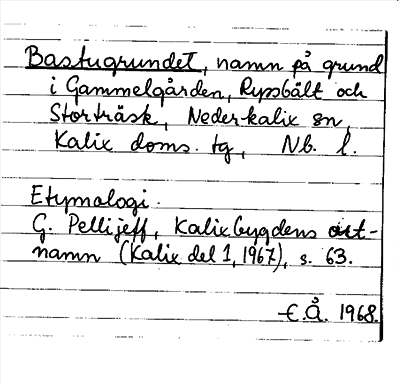 Bastugrundet, namn på grund
i Gammelgården, Rypsbält och
Storträsk, Nederkalix sn,
Kalix doms. tg, Nb. l.
Etymologi.
G. Pellijeff, Kalixbygdens ort-
namn (Kalix del 1, 1967), s. 63.
E.Å. 1968.